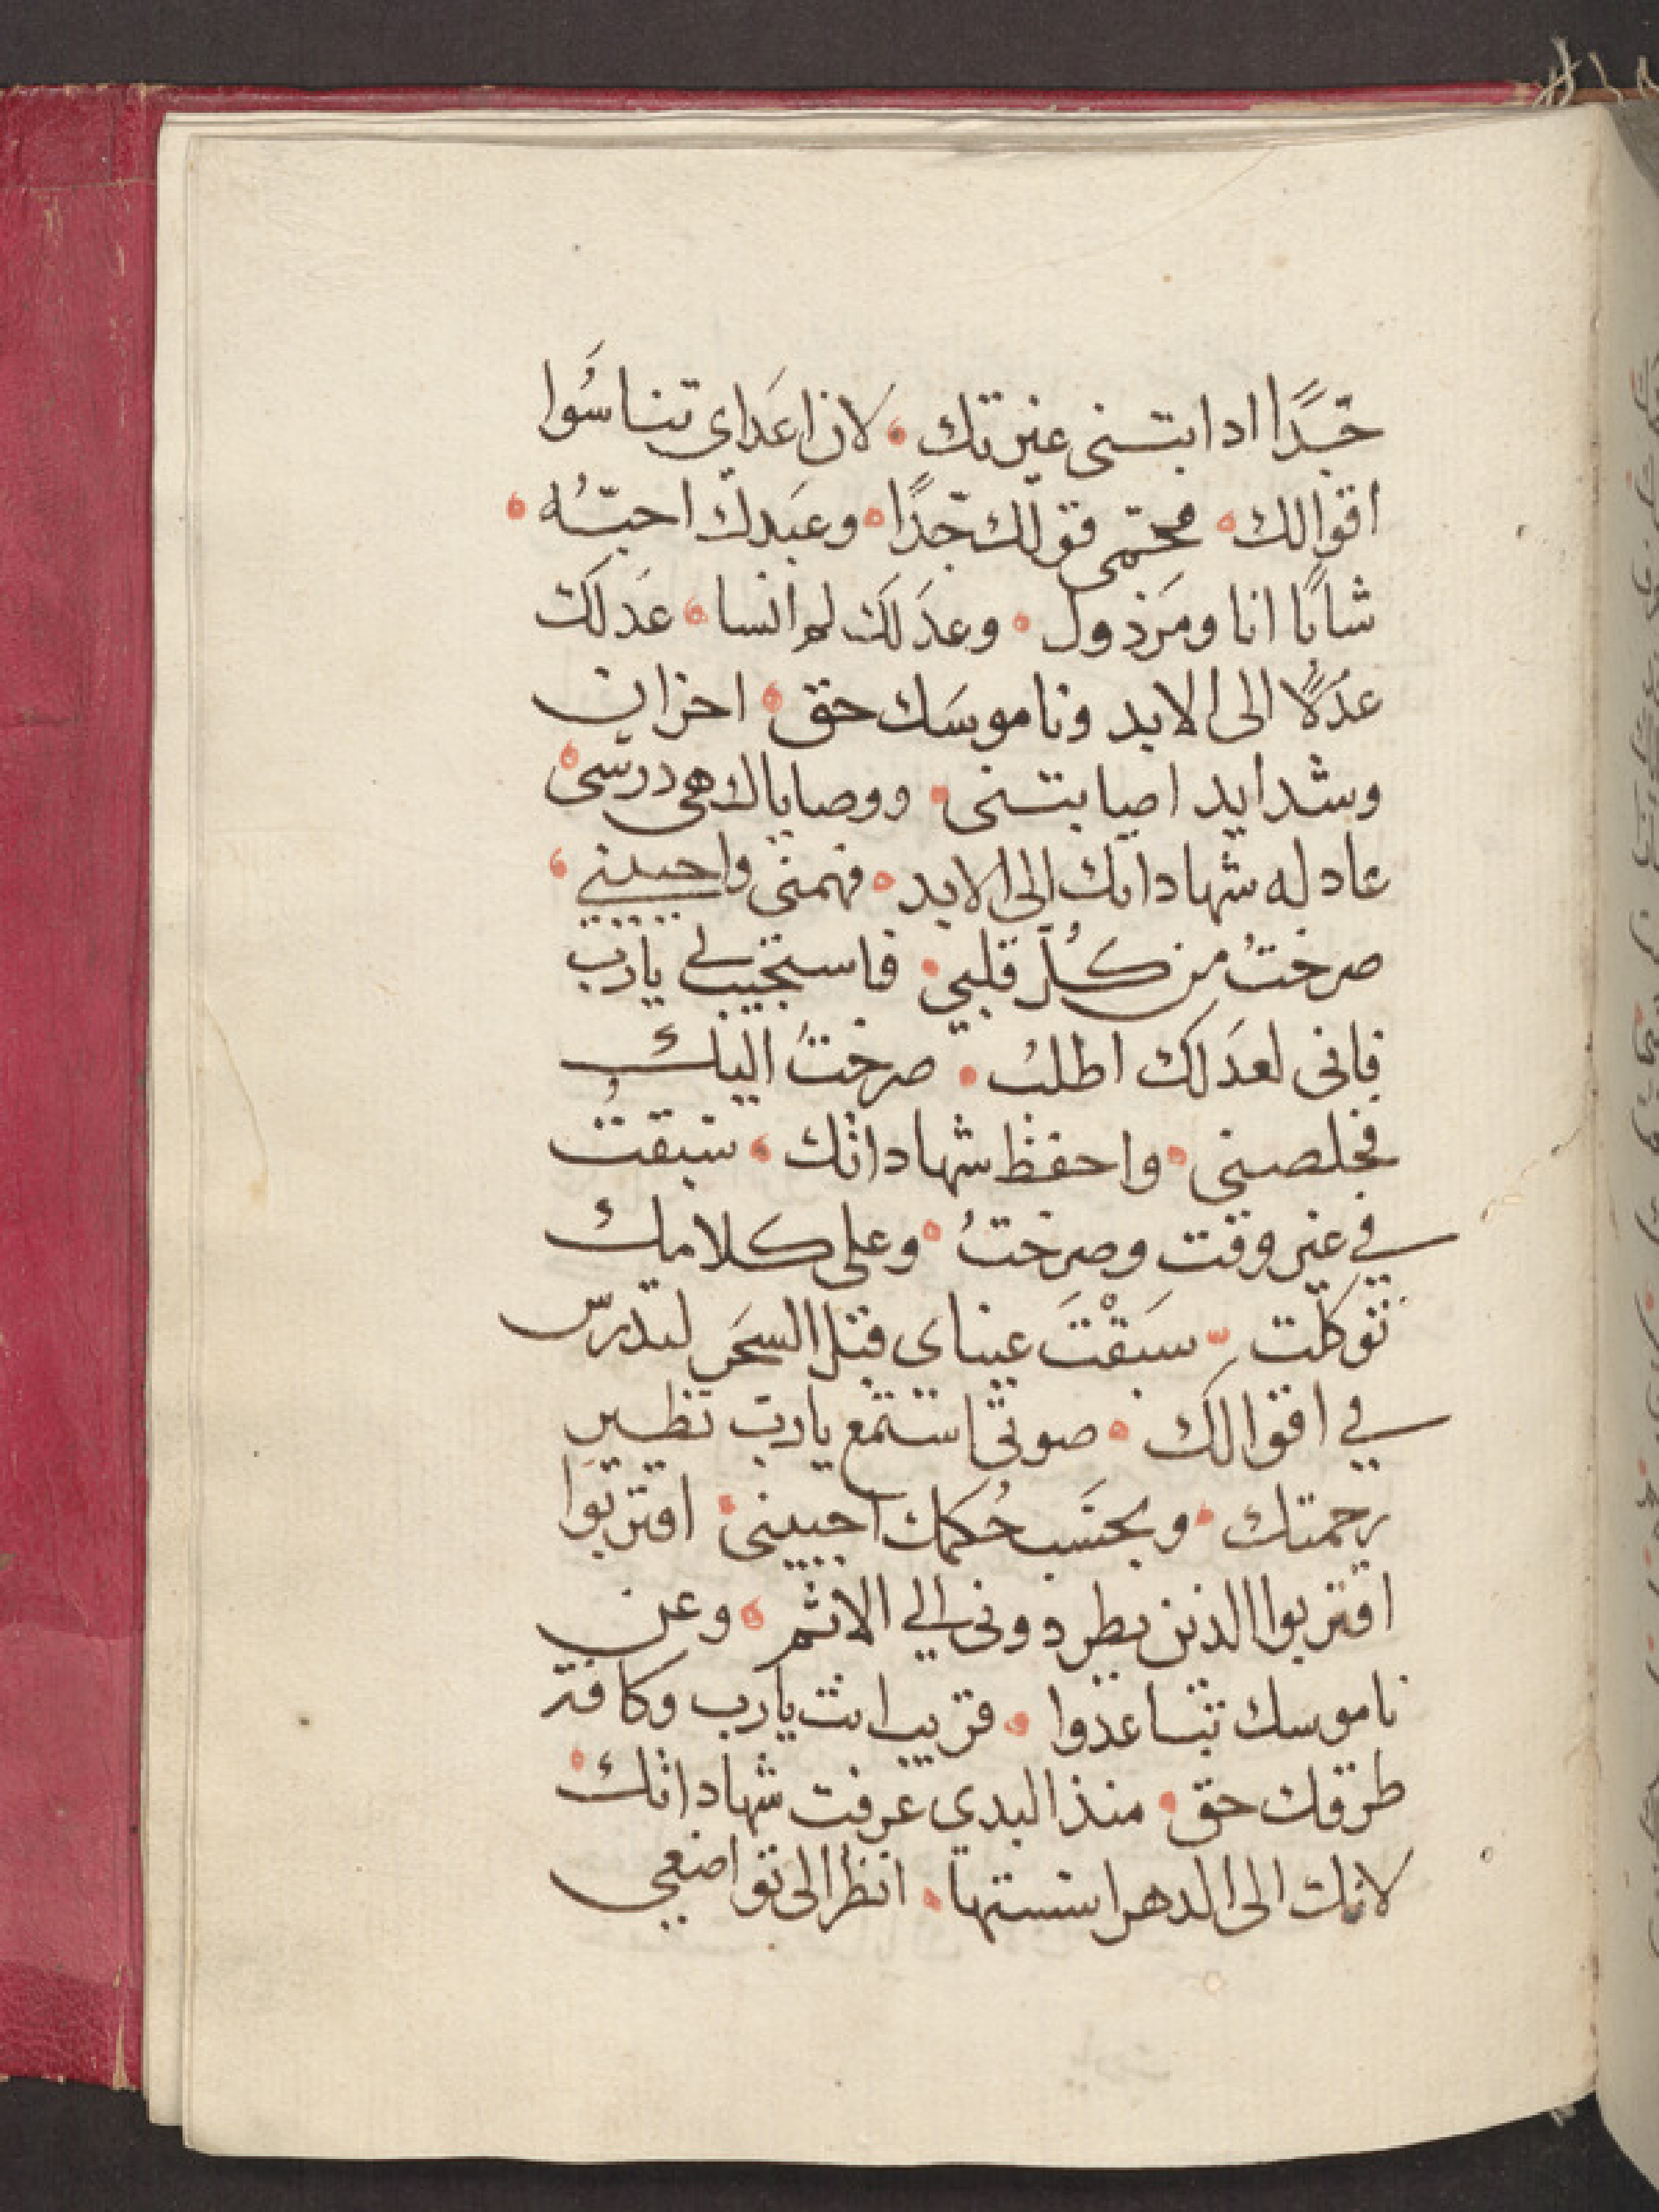 جدًا اذابتنى غيرتك لان اعداى تناسُوا
اقوالك محمّى قولك جدًا وعبدك احبّه
شابًا انا ومرذول وعدلك لم انسا عدلك
عدلًا الى الابد وناموسك حق احزان
وشدايد اصابتنى ووصاياك هى درسى
عادله شهاداتك الى الابد فهمنى واحيينى
صرختُ من كُلّ قلبي فاستجيب لى يارب
فانى لعدلك اطلبُ صرختُ اليك
فخلصنى واحفظ شهاداتك سبقتُ
في غير وقت وصرختُ وعلى كلامك
توكلت سَبقْتَ عيناى قبل السحَر لتدرّس
في اقوالك صوتى استمع يارب نظير
رحمتك وبحسَب حُكمك احيينى اقتربوا
اقتربوا الذين يطردونى الى الاثم وعن
ناموسك تباعدوا قريب انت يارب وكافة
طرقك حق منذ البدى عرفت شهاداتك
لانك الى الدهر استستها انظر الى تواضعي